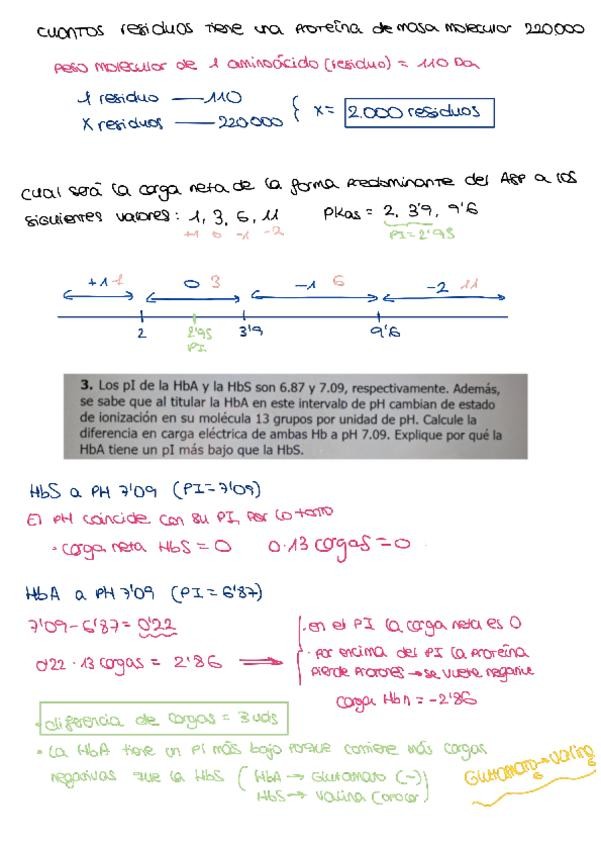 Cuantos residuos tiene una proteína de masa molecular 220000
Peso molecular de 1 aminoácido (residuo) = 110 Da
1 residuo — 110
X residuos — 220000
x = 2.000 residuos
Cual será la carga neta de la forma predominante del Asp a los
siguientes valores: 1, 3, 6, 11 PKas = 2, 3'9, 9'6
+1 0 -1 -2 PI = 2'95
+1 1 0 3 -1 6 -2 11
2 2'95 3'9 9'6
PI
3. Los pI de la HbA y la HbS son 6.87 y 7.09, respectivamente. Además,
se sabe que al titular la HbA en este intervalo de pH cambian de estado
de ionización en su molécula 13 grupos por unidad de pH. Calcule la
diferencia en carga eléctrica de ambas Hb a pH 7.09. Explique por qué la
HbA tiene un pI más bajo que la HbS.
HbS a PH 7'09 (PI = 7'09)
El PH coincide con su PI, por lo tanto
· carga neta HbS = 0 0·13 cargas = 0
HbA a PH 7'09 (PI = 6'87)
7'09 - 6'87 = 0'22
0'22 · 13 cargas = 2'86 →
· en el PI la carga neta es 0
· Por encima del PI la proteína
pierde protones → se vuelve negativa
carga HbA = -2'86
· diferencia de cargas = 3 uds
· La HbA tiene un PI más bajo porque contiene más cargas
negativas que la HbS (HbA → Glutamato (-)
HbS → Valina (apolar))
Glutamato → Valina
6 6